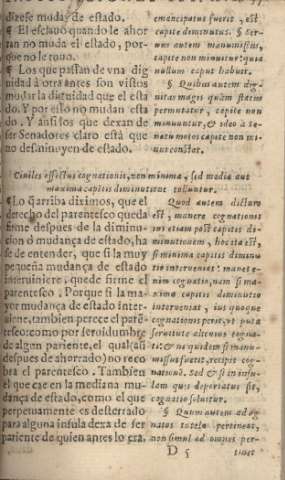 dizese mudar de estado.
¶ El esclauo quando le ahor
ran no muda el estado, por-
que no le tuuo.
¶ Los que passan de vna dig
nidad à otra antes son vistos
mudar la dignidad que el esta
do. Y por esso no mudan esta
do. Y ansi los que dexan de
ser Senadores claro està que
no desminuyen de estado.
emancipatus fuerit, est
capite diminutus. § Ser-
uus autem manumissus,
capite non minuitur: quia
nullum caput habuit.
§ Quibus autem dig-
nitas magis quàm status
permutatur, capite non
minuuntur, & ideo à se-
natu motos capite non mi-
nui constat.
Ciuiles effectus cognationis, non minima, sed media aut
maxima capitis diminutione tolluntur.
¶ Lo q̃ arriba diximos, que el
derecho del parentesco queda
firme despues de la diminu-
cion ò mudança de estado, ha
se de entender, que si la muy
pequeña mudança de estado
interuiniere, quede firme el
parentesco. Porque si la ma-
yor mudança de estado inter-
uiene, tambien perece el parẽ-
tesco: como por seruidumbre
de algun pariente, el qual (aũ
despues de ahorrado) no reco
bra el parentesco. Tambien
el que cae en la mediana mu-
dança de estado, como el que
perpetuamente es desterrado
para alguna insula dexa de ser
pariente de quien antes lo era.
Quod autem dictum
est, manere cognationis
ius etiam post capitis di-
minutionem, hoc ita est,
si minima capitis diminu
tio interueniat: manet e-
nim cognatio, nam si ma-
xima capitis diminutio
interueniat, ius quoque
cognationis perit, vt puta
seruitute alicuius cogna-
ti: & ne quidem si manu-
missus fuerit, recipit cog-
nationẽ. Sed & si in insu-
lam quis deportatus sit,
cognatio soluitur.
§ Quum autem ad ag-
natos tutela pertineat,
non simul ad omnes per-
D 5
tinet